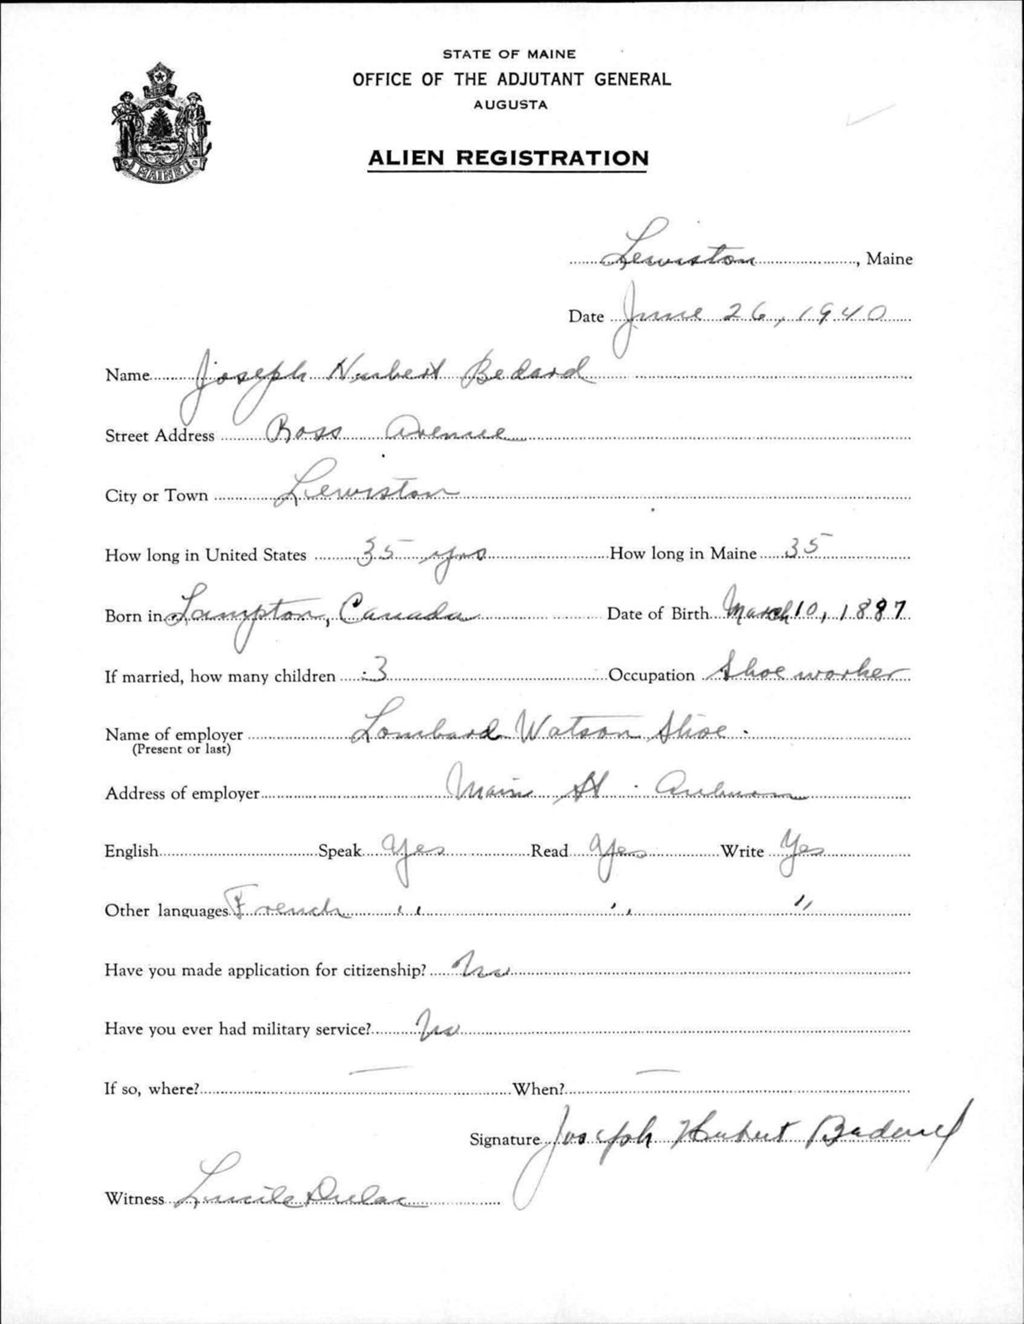 STATE OF MAINE
OFFICE OF THE ADJUTANT GENERAL
AUGUSTA
ALIEN REGISTRATION
MAINE
Lewiston, Maine
Date June 26, 1940
Name Joseph Hubert Bedard
Street Address Ross Avenue
City or Town Lewiston
How long in United States 35 yrs How long in Maine 35
Born in Lampton, Canada Date of Birth March 10, 1887
If married, how many children 3 Occupation Shoe worker
Name of employer Lombard Watson Shoe.
(Present or last)
Address of employer Main St. Auburn
English Speak Yes Read Yes Write Yes
Other languages French " " "
Have you made application for citizenship? No
Have you ever had military service? No
If so, where? — When? —
Signature Joseph Hubert Bedard
Witness Lucile Dulac